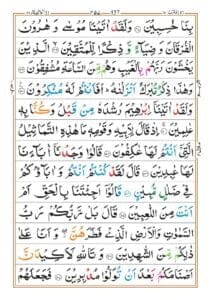 بِنَا حٰسِبِيْنَ ۝ وَلَقَدْ اٰتَيْنَا مُوْسٰى وَهٰرُوْنَ
الْفُرْقَانَ وَضِيَآءً وَّذِكْرًا لِّلْمُتَّقِيْنَ ۝ الَّذِيْنَ
يَخْشَوْنَ رَبَّهُمْ بِالْغَيْبِ وَهُمْ مِّنَ السَّاعَةِ مُشْفِقُوْنَ ۝
وَهٰذَا ذِكْرٌ مُّبٰرَكٌ اَنْزَلْنٰهُ ؕ اَفَاَنْتُمْ لَهٗ مُنْكِرُوْنَ ۝
وَلَقَدْ اٰتَيْنَآ اِبْرٰهِيْمَ رُشْدَهٗ مِنْ قَبْلُ وَكُنَّا بِهٖ
عٰلِمِيْنَ ۝ اِذْ قَالَ لِاَبِيْهِ وَقَوْمِهٖ مَا هٰذِهِ التَّمَاثِيْلُ
الَّتِيْٓ اَنْتُمْ لَهَا عٰكِفُوْنَ ۝ قَالُوْا وَجَدْنَآ اٰبَآءَنَا
لَهَا عٰبِدِيْنَ ۝ قَالَ لَقَدْ كُنْتُمْ اَنْتُمْ وَاٰبَآؤُكُمْ
فِيْ ضَلٰلٍ مُّبِيْنٍ ۝ قَالُوْٓا اَجِئْتَنَا بِالْحَقِّ اَمْ
اَنْتَ مِنَ اللّٰعِبِيْنَ ۝ قَالَ بَلْ رَّبُّكُمْ رَبُّ
السَّمٰوٰتِ وَالْاَرْضِ الَّذِيْ فَطَرَهُنَّ ۖ وَاَنَا عَلٰى
ذٰلِكُمْ مِّنَ الشّٰهِدِيْنَ ۝ وَتَاللّٰهِ لَاَكِيْدَنَّ
اَصْنَامَكُمْ بَعْدَ اَنْ تُوَلُّوْا مُدْبِرِيْنَ ۝ فَجَعَلَهُمْ